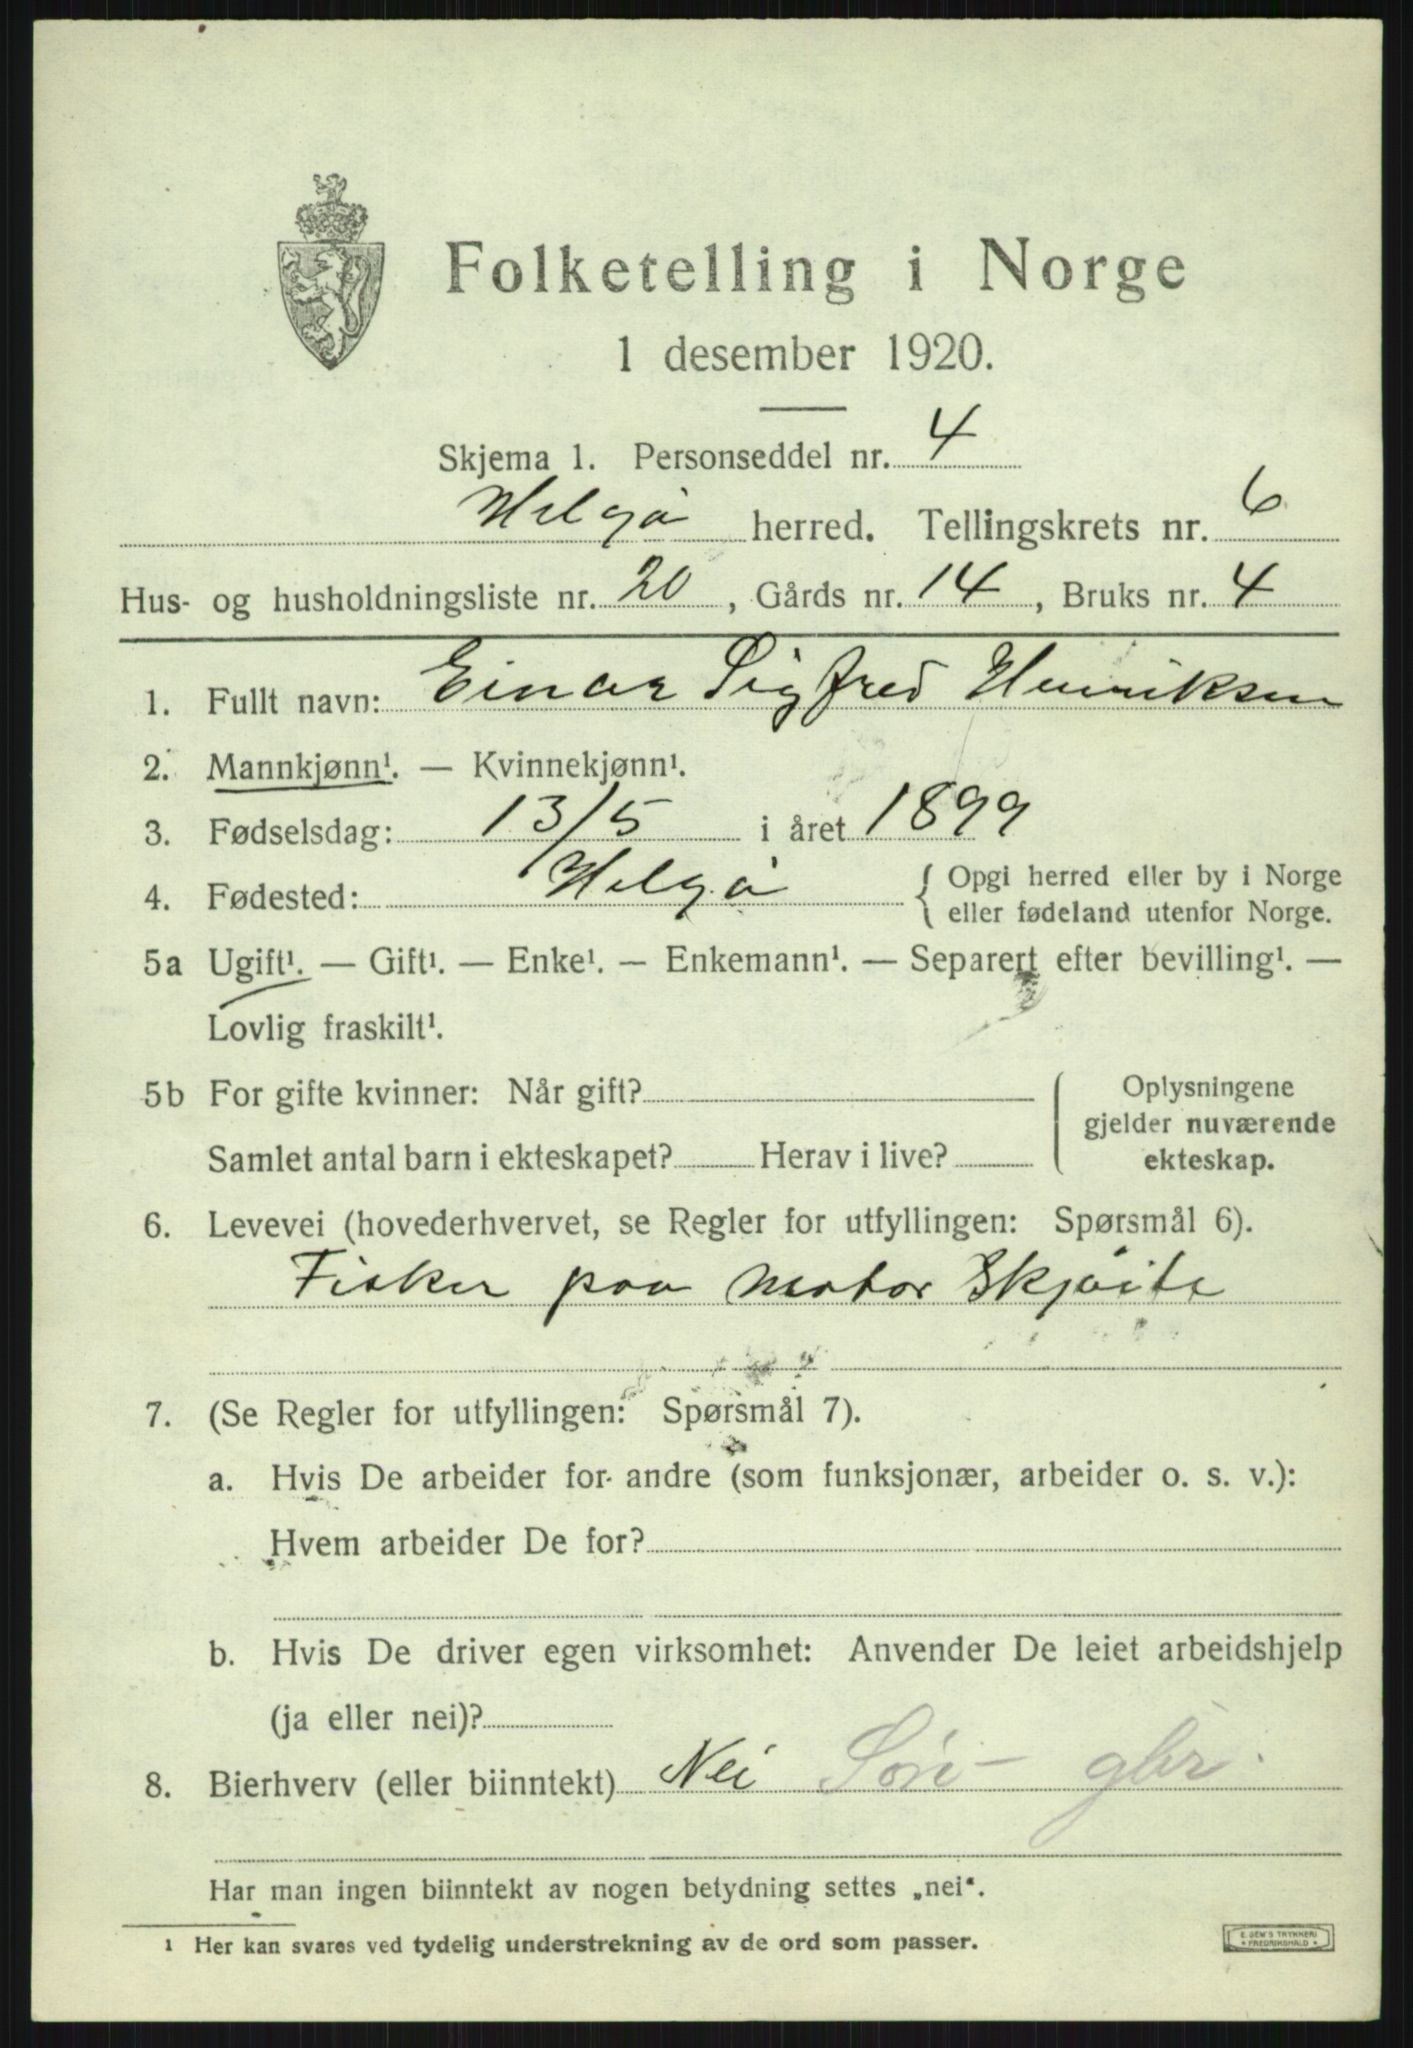 Folketelling i Norge
1 desember 1920.
Skjema 1. Personseddel nr. 4
Helgö herred. Tellingskrets nr. 6
Hus- og husholdningsliste nr. 20, Gårds nr. 14, Bruks nr. 4
1. Fullt navn: Einar Sigfred Henriksen
2. Mannkjønn¹. — Kvinnekjønn¹.
3. Fødselsdag: 13/5 i året 1899
4. Fødested: Helgö { Opgi herred eller by i Norge
eller fødeland utenfor Norge.
5a Ugift¹. — Gift¹. — Enke¹. — Enkemann¹. — Separert efter bevilling¹. —
Lovlig fraskilt¹.
5b For gifte kvinner: Når gift?
Samlet antal barn i ekteskapet? Herav i live?
Oplysningene
gjelder nuværende
ekteskap.
6. Levevei (hovederhvervet, se Regler for utfyllingen: Spørsmål 6).
Fisker paa motor Skjöite
7. (Se Regler for utfyllingen: Spørsmål 7).
a. Hvis De arbeider for andre (som funksjonær, arbeider o. s. v.):
Hvem arbeider De for?
b. Hvis De driver egen virksomhet: Anvender De leiet arbeidshjelp
(ja eller nei)?
8. Bierhverv (eller biinntekt) Nei gbr
Har man ingen biinntekt av nogen betydning settes „nei“.
¹ Her kan svares ved tydelig understrekning av de ord som passer.
E. SEM'S TRYKKERI
* FREDRIKSHALD *